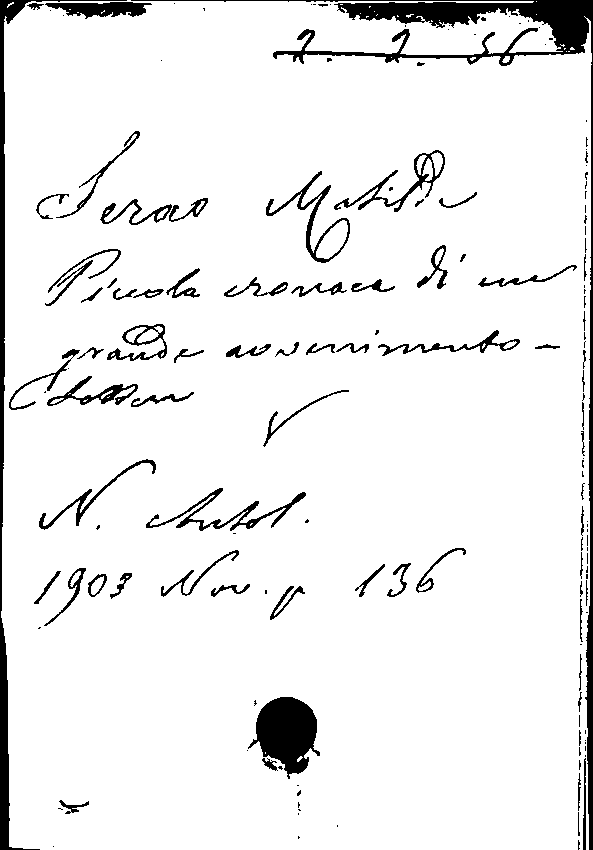 2. 2. 56
Serao Matilde
Piccola cronaca di un
grande avvenimento -
N. Antol.
1903 Nov. p 136